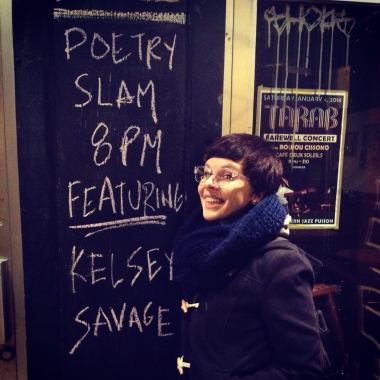 POETRY
SLAM
8PM
FEATURING
KELSEY
SAVAGE
SATURDAY JANUARY 4, 2014
TARAB
FAREWELL CONCERT
BOUJOU CISSOKO
CAFE DEUX SOLEILS
8PM $10
JAZZ FUSION